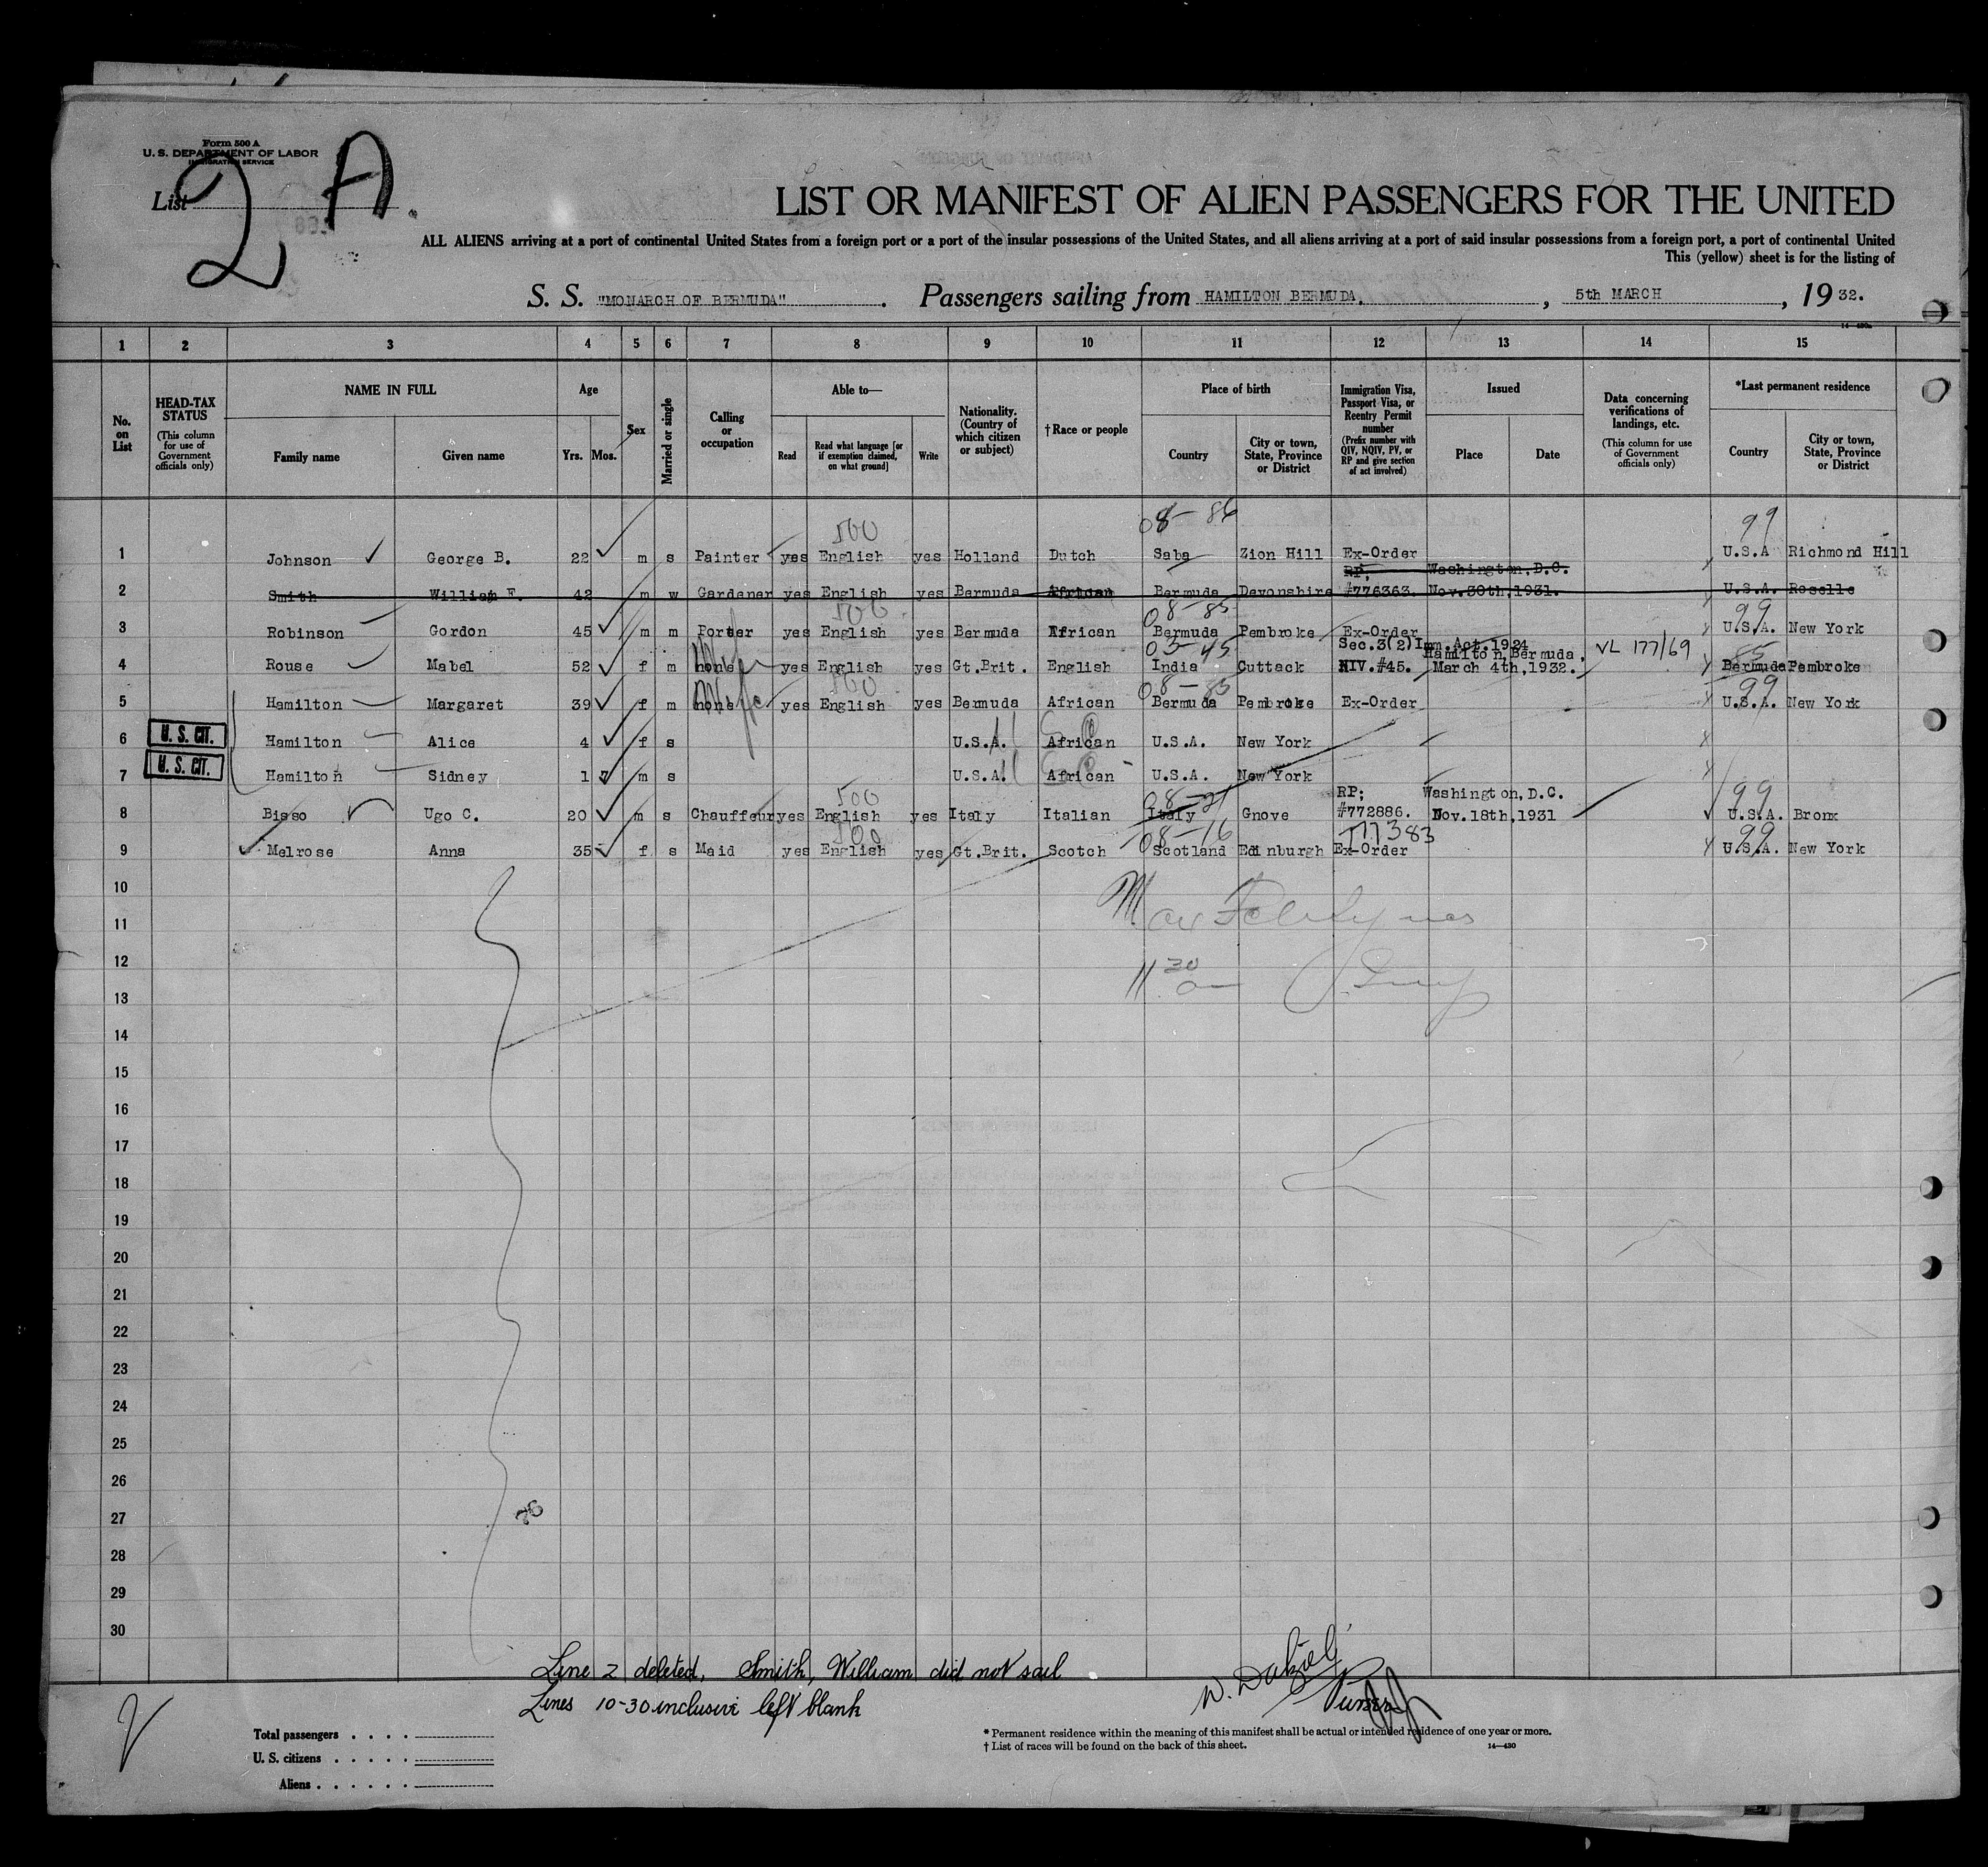 Form 500 A
U. S. DEPARTMENT OF LABOR
IMMIGRATION SERVICE
List 2 A.
LIST OR MANIFEST OF ALIEN PASSENGERS FOR THE UNITED
ALL ALIENS arriving at a port of continental United States from a foreign port or a port of the insular possessions of the United States, and all aliens arriving at a port of said insular possessions from a foreign port, a port of continental United
This (yellow) sheet is for the listing of
S. S. "MONARCH OF BERMUDA". Passengers sailing from HAMILTON BERMUDA., 5th MARCH, 1932.
14—430a
1 2 3 4 5 6 7 8 9 10 11 12 13 14 15
No. on List
HEAD-TAX STATUS (This column for use of Government officials only)
NAME IN FULL
Family name Given name
Age
Yrs. Mos.
Sex
Married or single
Calling or occupation
Able to—
Read Read what language [or if exemption claimed, on what ground] Write
Nationality. (Country of which citizen or subject)
†Race or people
Place of birth
Country City or town, State, Province or District
Immigration Visa, Passport Visa, or Reentry Permit number (Prefix number with QIV, NQIV, PV, or RP and give section of act involved)
Issued
Place Date
Data concerning verifications of landings, etc. (This column for use of Government officials only)
*Last permanent residence
Country City or town, State, Province or District
500 08-86 99
1 Johnson George B. 22 m s Painter yes English yes Holland Dutch Saba Zion Hill Ex-Order U.S.A Richmond Hill
RP; Washington, D.C.
2 Smith William F. 42 m w Gardener yes English yes Bermuda African Bermuda Devonshire #776363. Nov.30th,1931. U.S.A. Roselle
500 08-85 99
3 Robinson Gordon 45 m m Porter yes English yes Bermuda African Bermuda Pembroke Ex-Order U.S.A. New York
03-45 Sec.3(2)Imm.Act.1924 Hamilton, Bermuda, VL 177/69 85
4 Rouse Mabel 52 f m none Wife yes English yes Gt.Brit. English India Cuttack NIV.#45. March 4th,1932. Bermuda Pembroke
500 08-85 99
5 Hamilton Margaret 39 f m none Wife yes English yes Bermuda African Bermuda Pembroke Ex-Order U.S.A. New York
U. S. CIT.
6 Hamilton Alice 4 f s U.S.A. African U.S.A. New York
U. S. CIT.
7 Hamilton Sidney 1 7 m s U.S.A. African U.S.A. New York
500 08-21 RP; Washington, D.C. 99
8 Bisso Ugo C. 20 m s Chauffeur yes English yes Italy Italian Italy Gnove #772886. Nov.18th,1931 U.S.A. Bronx
500 08-16 99
9 Melrose Anna 35 f s Maid yes English yes Gt.Brit. Scotch Scotland Edinburgh Ex-Order U.S.A. New York
10
11
12 11 30
13
14
15
16
17
18
19
20
21
22
23
24
25
26
27
28
29
30
Line 2 deleted, Smith, William did not sail
Lines 10-30 inclusive left blank
Purser
Total passengers
U. S. citizens
Aliens
* Permanent residence within the meaning of this manifest shall be actual or intended residence of one year or more.
† List of races will be found on the back of this sheet.
14—430